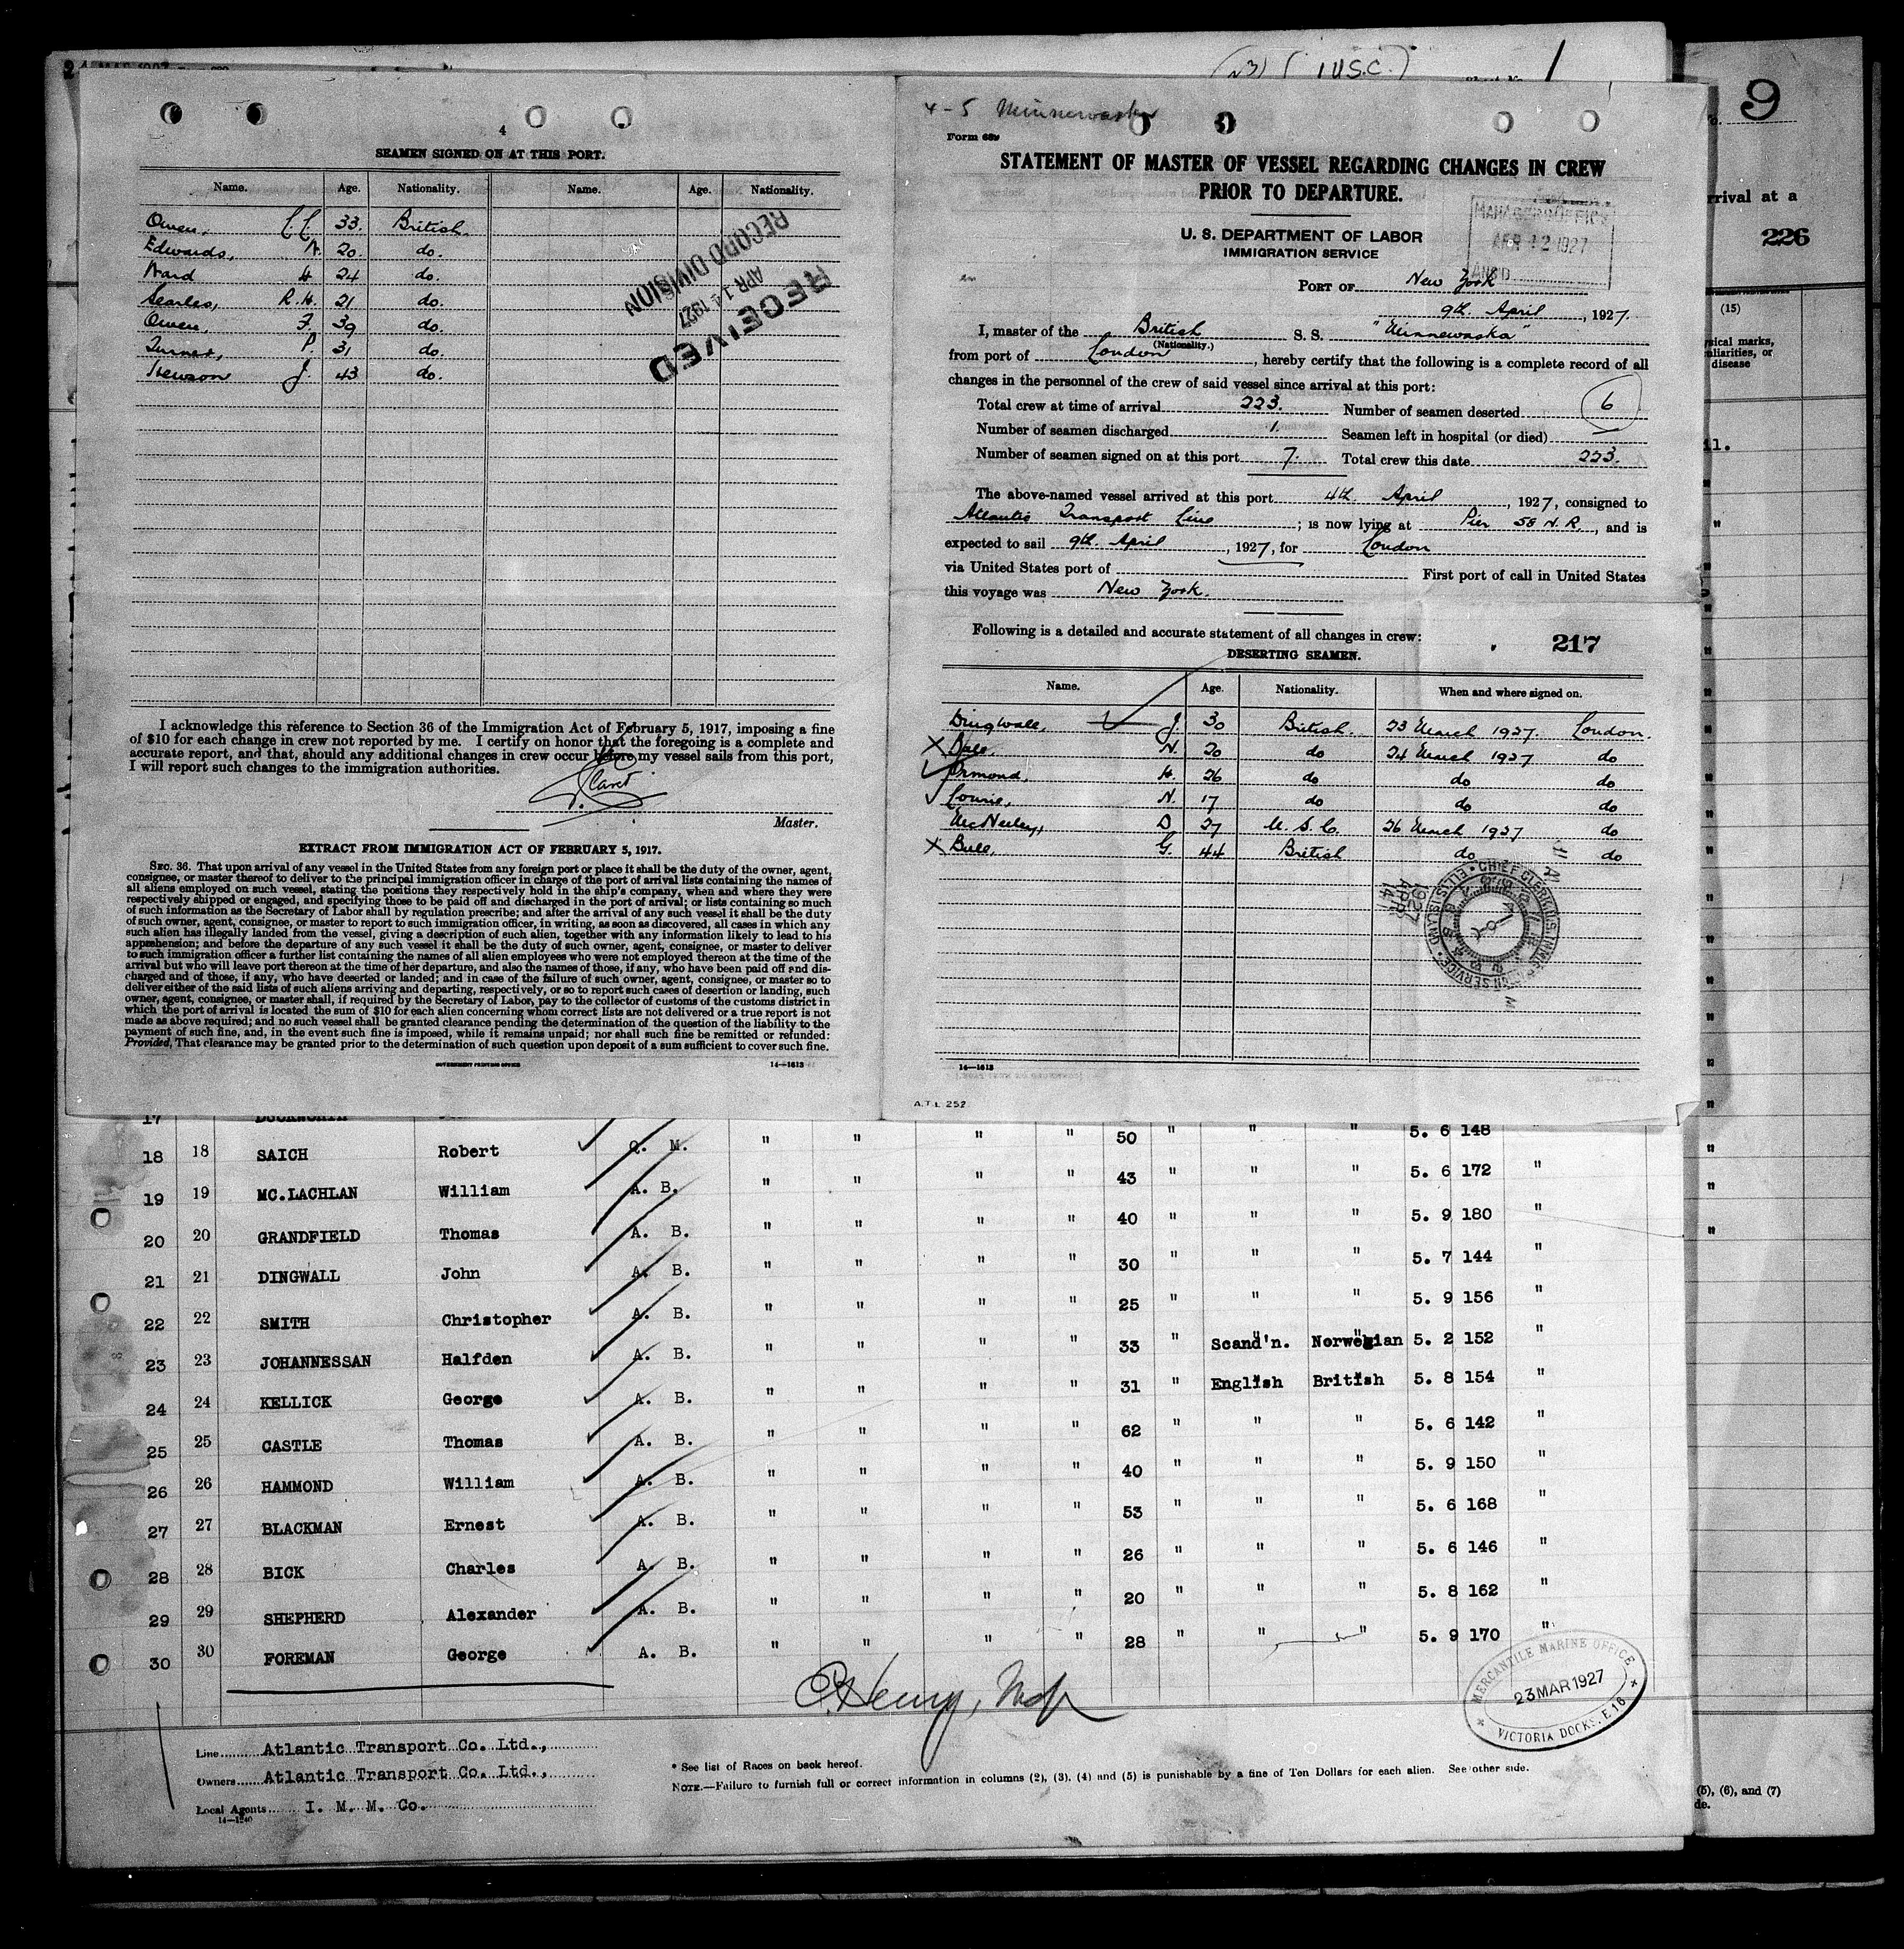 (1 U.S.C.)
1
9
rrival at a
226
(15)
sical marks,
uliarities, or
disease
4
SEAMEN SIGNED ON AT THIS PORT.
Name. Age. Nationality. Name. Age. Nationality.
Owen, 33. British.
Edwards, 20. do.
Ward H 24 do.
Searles, R.H. 21 do.
Owen, F. 39 do.
Turner, P. 31 do.
Hewson J. 43 do.
RECEIVED
APR 14 1927
RECORD DIVISION
I acknowledge this reference to Section 36 of the Immigration Act of February 5, 1917, imposing a fine
of $10 for each change in crew not reported by me. I certify on honor that the foregoing is a complete and
accurate report, and that, should any additional changes in crew occur before my vessel sails from this port,
I will report such changes to the immigration authorities.
Claret
Master.
EXTRACT FROM IMMIGRATION ACT OF FEBRUARY 5, 1917.
SEC. 36. That upon arrival of any vessel in the United States from any foreign port or place it shall be the duty of the owner, agent,
consignee, or master thereof to deliver to the principal immigration officer in charge of the port of arrival lists containing the names of
all aliens employed on such vessel, stating the positions they respectively hold in the ship's company, when and where they were
respectively shipped or engaged, and specifying those to be paid off and discharged in the port of arrival; or lists containing so much
of such information as the Secretary of Labor shall by regulation prescribe; and after the arrival of any such vessel it shall be the duty
of such owner, agent, consignee, or master to report to such immigration officer, in writing, as soon as discovered, all cases in which any
such alien has illegally landed from the vessel, giving a description of such alien, together with any information likely to lead to his
apprehension; and before the departure of any such vessel it shall be the duty of such owner, agent, consignee, or master to deliver
to such immigration officer a further list containing the names of all alien employees who were not employed thereon at the time of the
arrival but who will leave port thereon at the time of her departure, and also the names of those, if any, who have been paid off and dis-
charged and of those, if any, who have deserted or landed; and in case of the failure of such owner, agent, consignee, or master so to
deliver either of the said lists of such aliens arriving and departing, respectively, or so to report such cases of desertion or landing, such
owner, agent, consignee, or master shall, if required by the Secretary of Labor, pay to the collector of customs of the customs district in
which the port of arrival is located the sum of $10 for each alien concerning whom correct lists are not delivered or a true report is not
made as above required; and no such vessel shall be granted clearance pending the determination of the question of the liability to the
payment of such fine, and, in the event such fine is imposed, while it remains unpaid; nor shall such fine be remitted or refunded:
Provided, That clearance may be granted prior to the determination of such question upon deposit of a sum sufficient to cover such fine.
GOVERNMENT PRINTING OFFICE 14—1613
4-5 Minnewaska
Form 689
STATEMENT OF MASTER OF VESSEL REGARDING CHANGES IN CREW
PRIOR TO DEPARTURE.
U. S. DEPARTMENT OF LABOR
IMMIGRATION SERVICE
MANAGERS OFFICE
APR 12 1927
PORT OF New York
9th. April, 1927.
I, master of the British S. S. "Minnewaska"
(Nationality.)
from port of London, hereby certify that the following is a complete record of all
changes in the personnel of the crew of said vessel since arrival at this port:
Total crew at time of arrival 223. Number of seamen deserted 6
Number of seamen discharged 1. Seamen left in hospital (or died) —
Number of seamen signed on at this port 7. Total crew this date 223.
The above-named vessel arrived at this port 4th. April, 1927, consigned to
Atlantic Transport Line; is now lying at Pier 58 N.R., and is
expected to sail 9th. April, 1927, for London
via United States port of First port of call in United States
this voyage was New York.
Following is a detailed and accurate statement of all changes in crew: 217
DESERTING SEAMEN.
Name. Age. Nationality. When and where signed on.
Dingwall, J. 30 British. 23 March 1927. London.
X N. 20 do 24 March 1927 do
Ormond, H. 26 do do do
N. 17 do do do
McNeeley, D 27 U.S.C. 26 March 1927 do
X Bull, G. 44 British do do
1927 APR
14—1613
A.T.L 252
17 DUCKWORTH
5. 6 148
18 18 SAICH Robert Q. M. " " " " 50 " " " 5. 6 172 "
19 19 MC.LACHLAN William A. B. " " " " 43 " " " 5. 9 180 "
20 20 GRANDFIELD Thomas A. B. " " " " 40 " " " 5. 7 144 "
21 21 DINGWALL John A. B. " " " " 30 " " " 5. 9 156 "
22 22 SMITH Christopher A. B. " " " " 25 " " " 5. 2 152 "
23 23 JOHANNESSAN Halfden A. B. " " " " 33 " Scand'n. Norwegian 5. 8 154 "
24 24 KELLICK George A. B. " " " " 31 " English British 5. 6 142 "
25 25 CASTLE Thomas A. B. " " " " 62 " " " 5. 9 150 "
26 26 HAMMOND William A. B. " " " " 40 " " " 5. 6 168 "
27 27 BLACKMAN Ernest A. B. " " " " 53 " " " 5. 6 146 "
28 28 BICK Charles A. B. " " " " 26 " " " 5. 8 162 "
29 29 SHEPHERD Alexander A. B. " " " " 20 " " " 5. 9 170 "
30 30 FOREMAN George A. B. " " " " 28 " " "
MERCANTILE MARINE OFFICE
23 MAR 1927
VICTORIA DOCKS. E 16
Line Atlantic Transport Co. Ltd.,
Owners Atlantic Transport Co. Ltd.,
Local Agents I. M. M. Co.
14—1240
* See list of Races on back hereof.
NOTE.—Failure to furnish full or correct information in columns (2), (3), (4) and (5) is punishable by a fine of Ten Dollars for each alien. See other side.
(5), (6), and (7)
de.